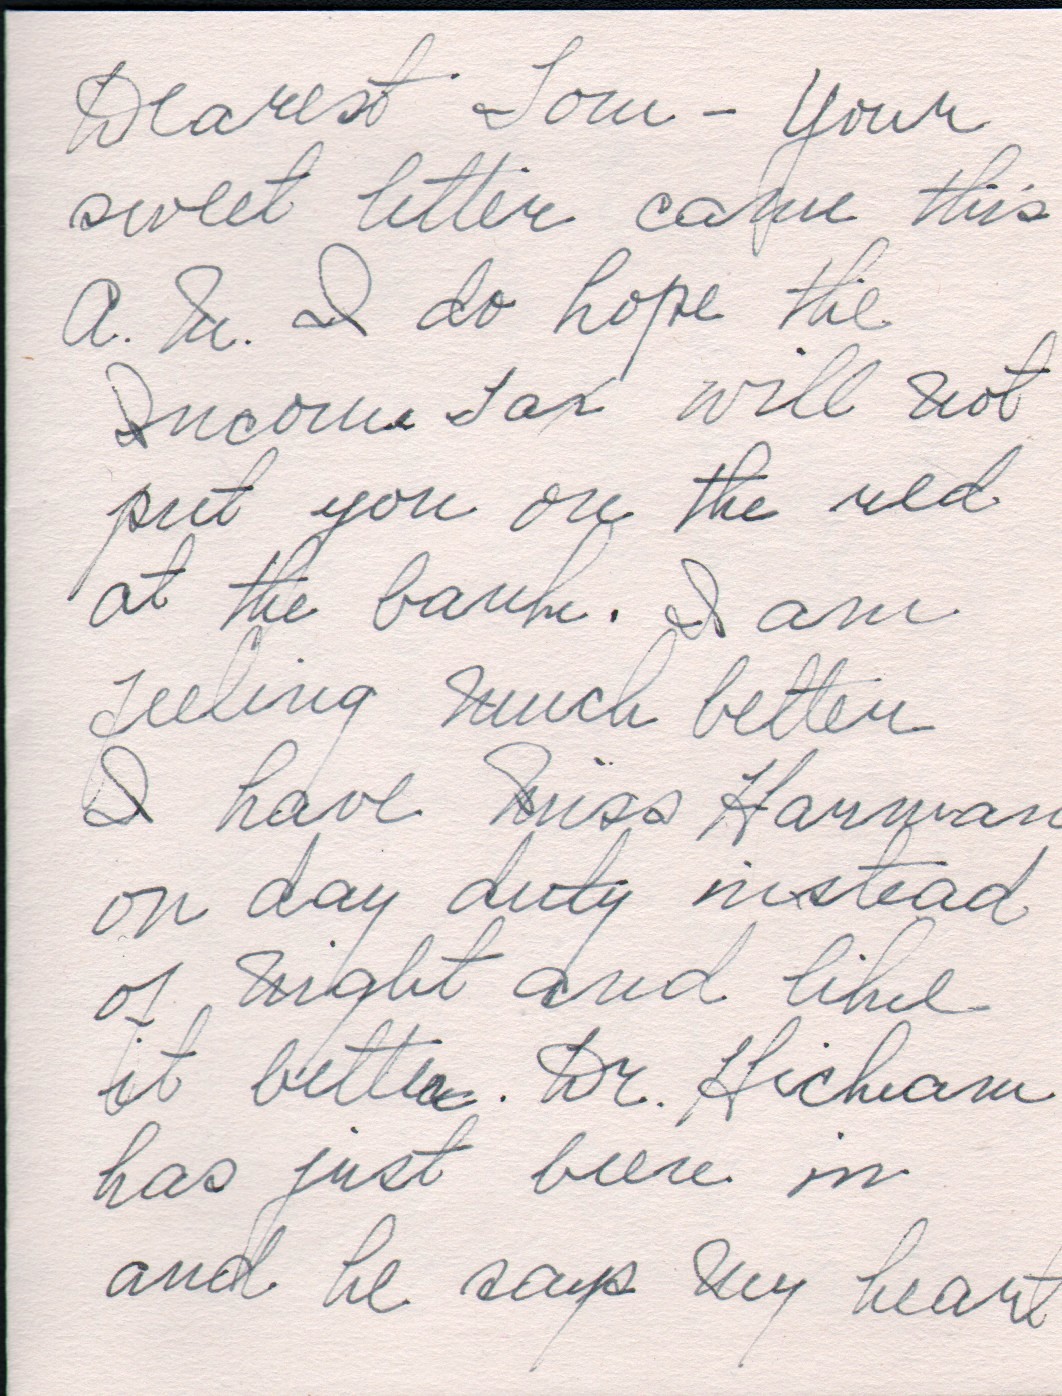 Dearest Tom - Your
sweet letter came this
A. M. I do hope the
Income Tax will not
put you on the red
at the bank. I am
feeling much better
I have Miss Harman
on day duty instead
of night and like
it better. Dr. Hickam
has just been in
and he says my heart